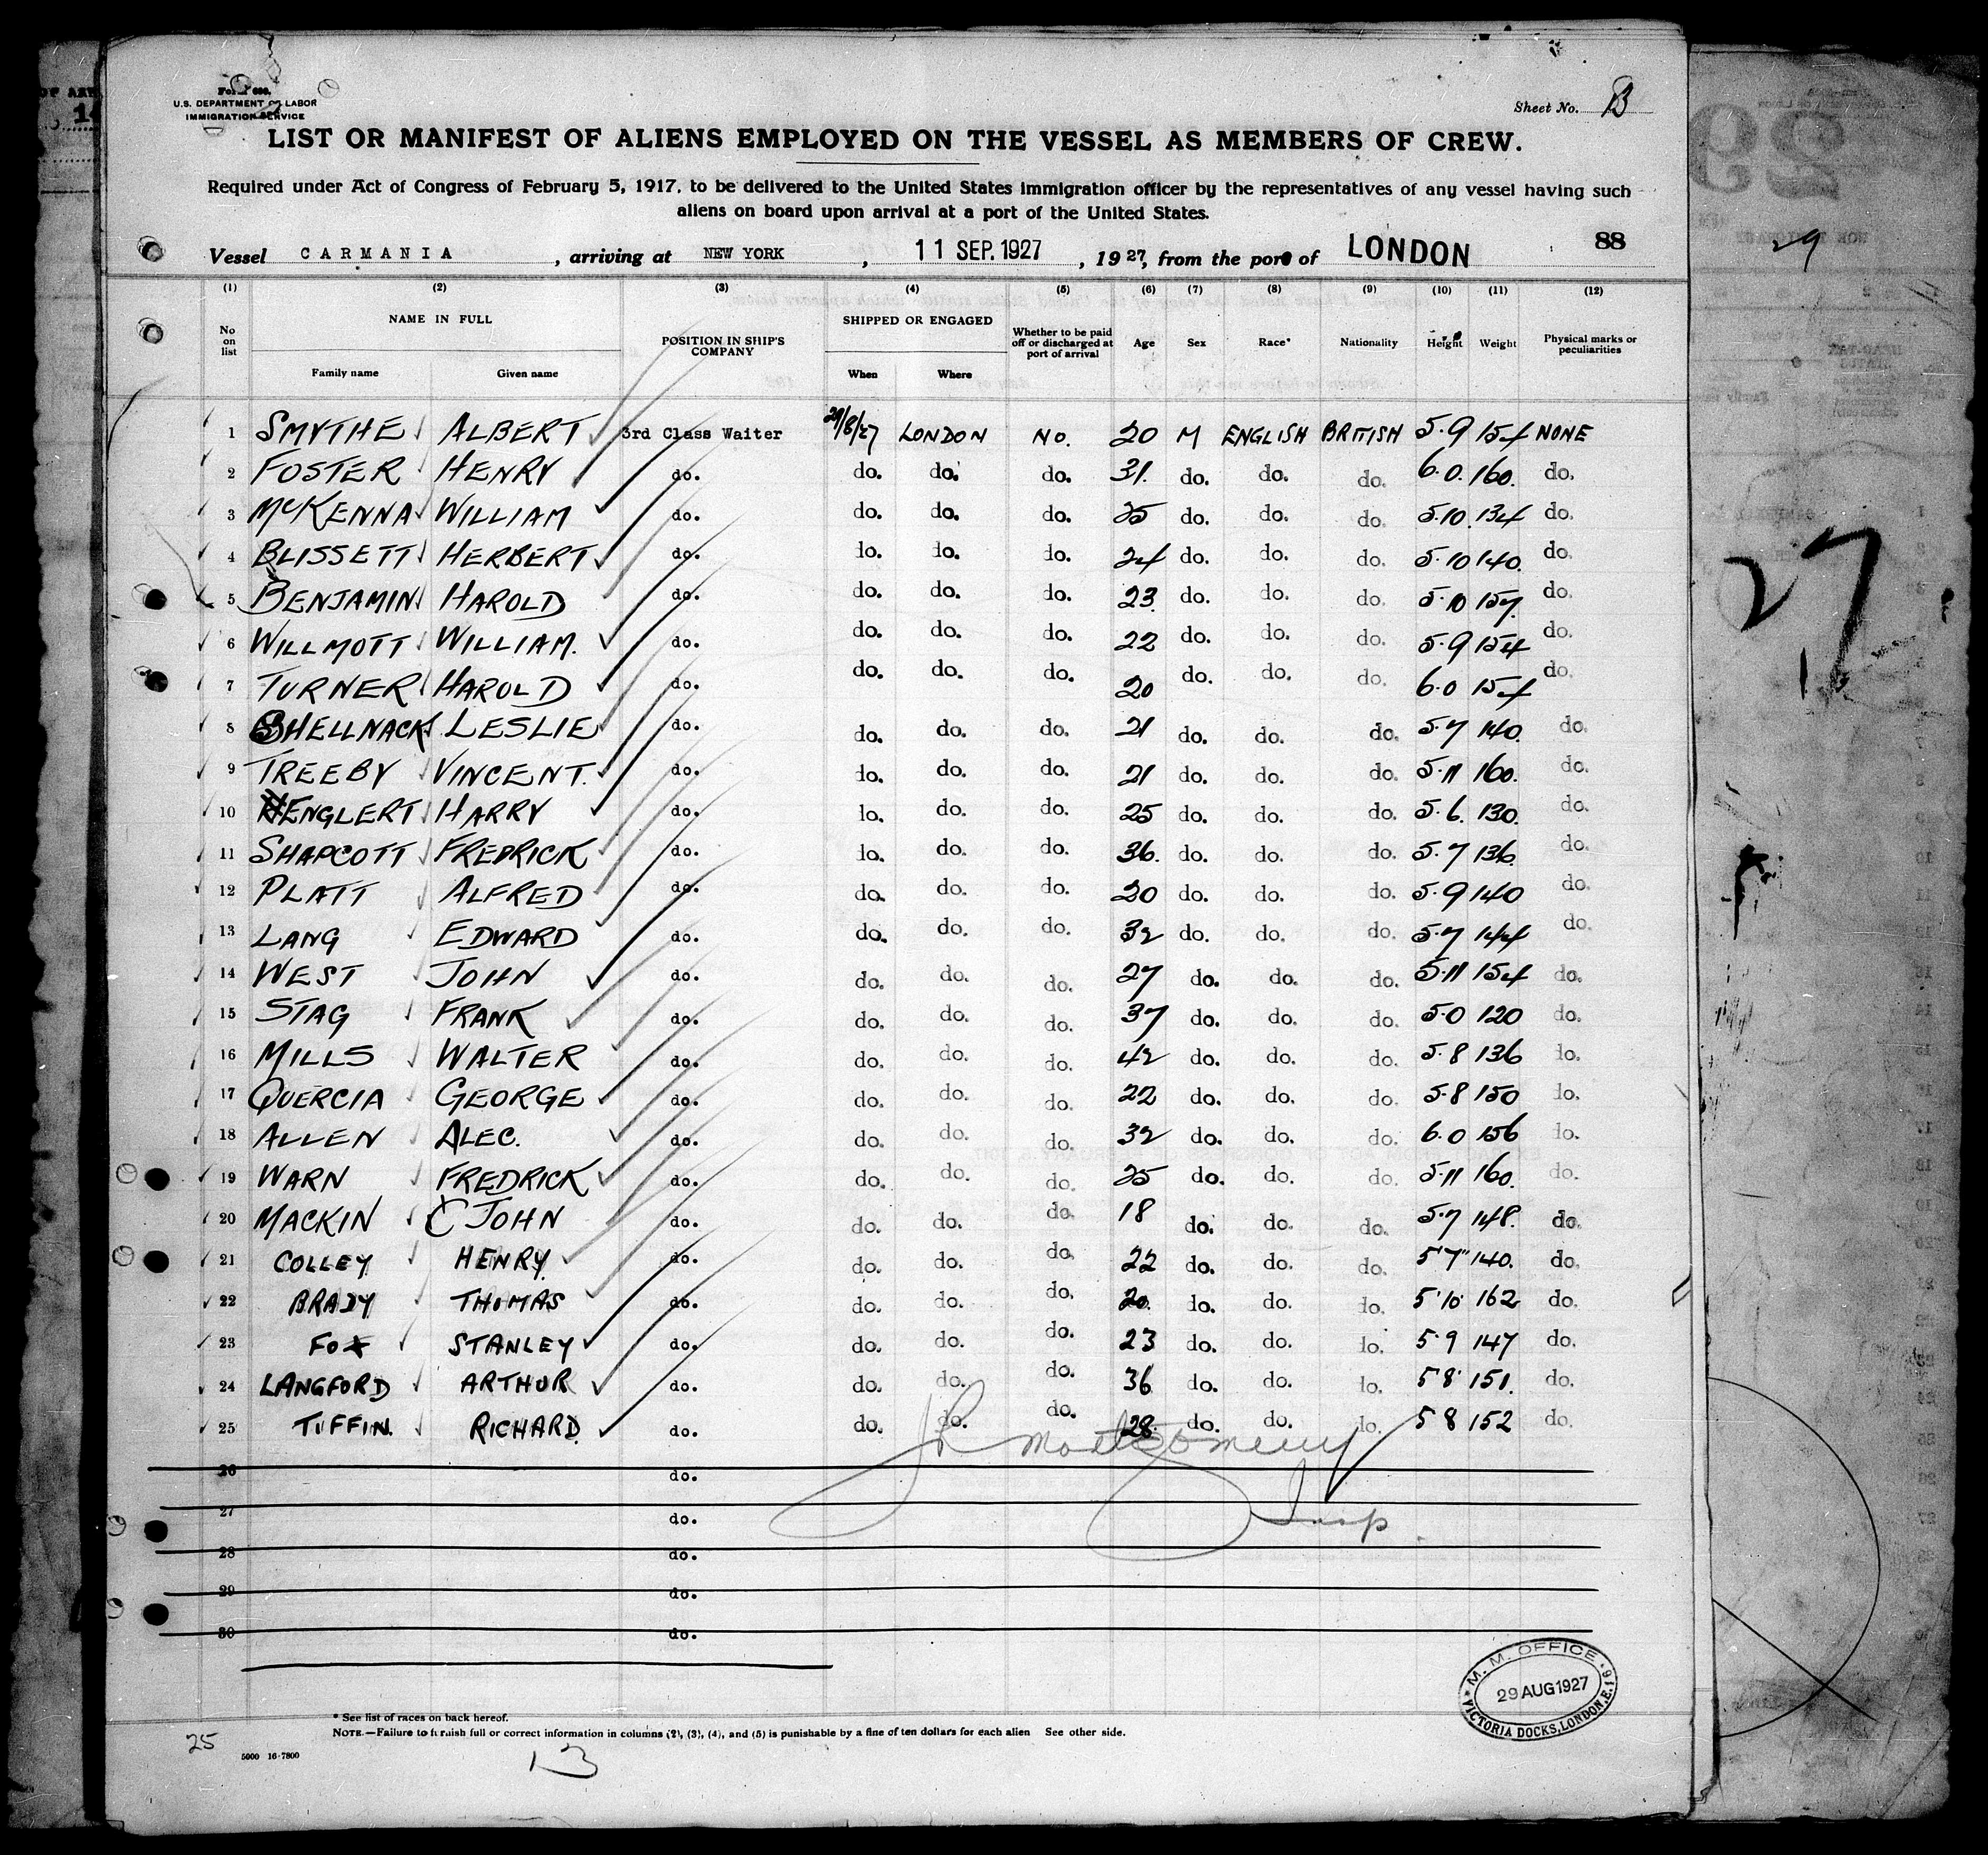 Form 680.
U.S. DEPARTMENT OF LABOR
IMMIGRATION SERVICE
Sheet No.
LIST OR MANIFEST OF ALIENS EMPLOYED ON THE VESSEL AS MEMBERS OF CREW.
Required under Act of Congress of February 5, 1917, to be delivered to the United States immigration officer by the representatives of any vessel having such
aliens on board upon arrival at a port of the United States.
88
Vessel CARMANIA, arriving at NEW YORK, 11 SEP. 1927, 1927, from the port of LONDON
29
(1) (2) (3) (4) (5) (6) (7) (8) (9) (10) (11) (12)
No on list NAME IN FULL Family name Given name POSITION IN SHIP'S COMPANY SHIPPED OR ENGAGED When Where Whether to be paid off or discharged at port of arrival Age Sex Race* Nationality Height Weight Physical marks or peculiarities
1 SMYTHE ALBERT 3rd Class Waiter 29/8/27 LONDON NO. 20 M ENGLISH BRITISH 5.9 154 NONE
2 FOSTER HENRY do. do. do. do. 31. do. do. do. 6.0. 160. do.
3 McKENNA WILLIAM do. do. do. do. 25 do. do. do. 5.10. 134 do.
4 BLISSETT HERBERT do. do. do. do. 24 do. do. do. 5.10 140. do.
5 BENJAMIN HAROLD do. do. do. do. 23. do. do. do. 5.10 157. do.
6 WILLMOTT WILLIAM. do. do. do. do. 22 do. do. do. 5.9 154 do.
7 TURNER HAROLD do. do. do. do. 20 do. do. do. 6.0 154 do.
8 SHELLNACK LESLIE do. do. do. do. 21 do. do. do. 5.7 140. do.
9 TREEBY VINCENT. do. do. do. do. 21 do. do. do. 5.11 160. do.
10 HENGLERT HARRY do. do. do. do. 25 do. do. do. 5.6. 130. do.
11 SHAPCOTT FREDRICK do. do. do. do. 36. do. do. do. 5.7 136. do.
12 PLATT ALFRED do. do. do. do. 20 do. do. do. 5.9 140 do.
13 LANG EDWARD do. do. do. do. 32 do. do. do. 5.7 144 do.
14 WEST JOHN do. do. do. do. 27 do. do. do. 5.11 154 do.
15 STAG FRANK do. do. do. do. 37 do. do. do. 5.0 120 do.
16 MILLS WALTER do. do. do. do. 42 do. do. do. 5.8 136 do.
17 QUERCIA GEORGE do. do. do. do. 22 do. do. do. 5.8 150 do.
18 ALLEN ALEC. do. do. do. do. 32 do. do. do. 6.0 156 do.
19 WARN FREDRICK do. do. do. do. 25 do. do. do. 5.11 160. do.
20 MACKIN C JOHN do. do. do. do. 18 do. do. do. 5.7 148. do.
21 COLLEY HENRY. do. do. do. do. 22 do. do. do. 5'7" 140. do.
22 BRADY THOMAS do. do. do. do. 20. do. do. do. 5'10' 162 do.
23 FOX STANLEY do. do. do. do. 23 do. do. do. 5.9 147 do.
24 LANGFORD ARTHUR do. do. do. do. 36 do. do. do. 5'8' 151. do.
25 TUFFIN. RICHARD. do. do. do. do. 28. do. do. do. 5 8 152 do.
Montgomery
26 do.
Insp.
27 do.
28 do.
29 do.
30 do.
27
M. M. OFFICE
29 AUG 1927
VICTORIA DOCKS, LONDON, E.16
* See list of races on back hereof.
NOTE.—Failure to furnish full or correct information in columns (2), (3), (4), and (5) is punishable by a fine of ten dollars for each alien See other side.
25
5000 16-7800
13